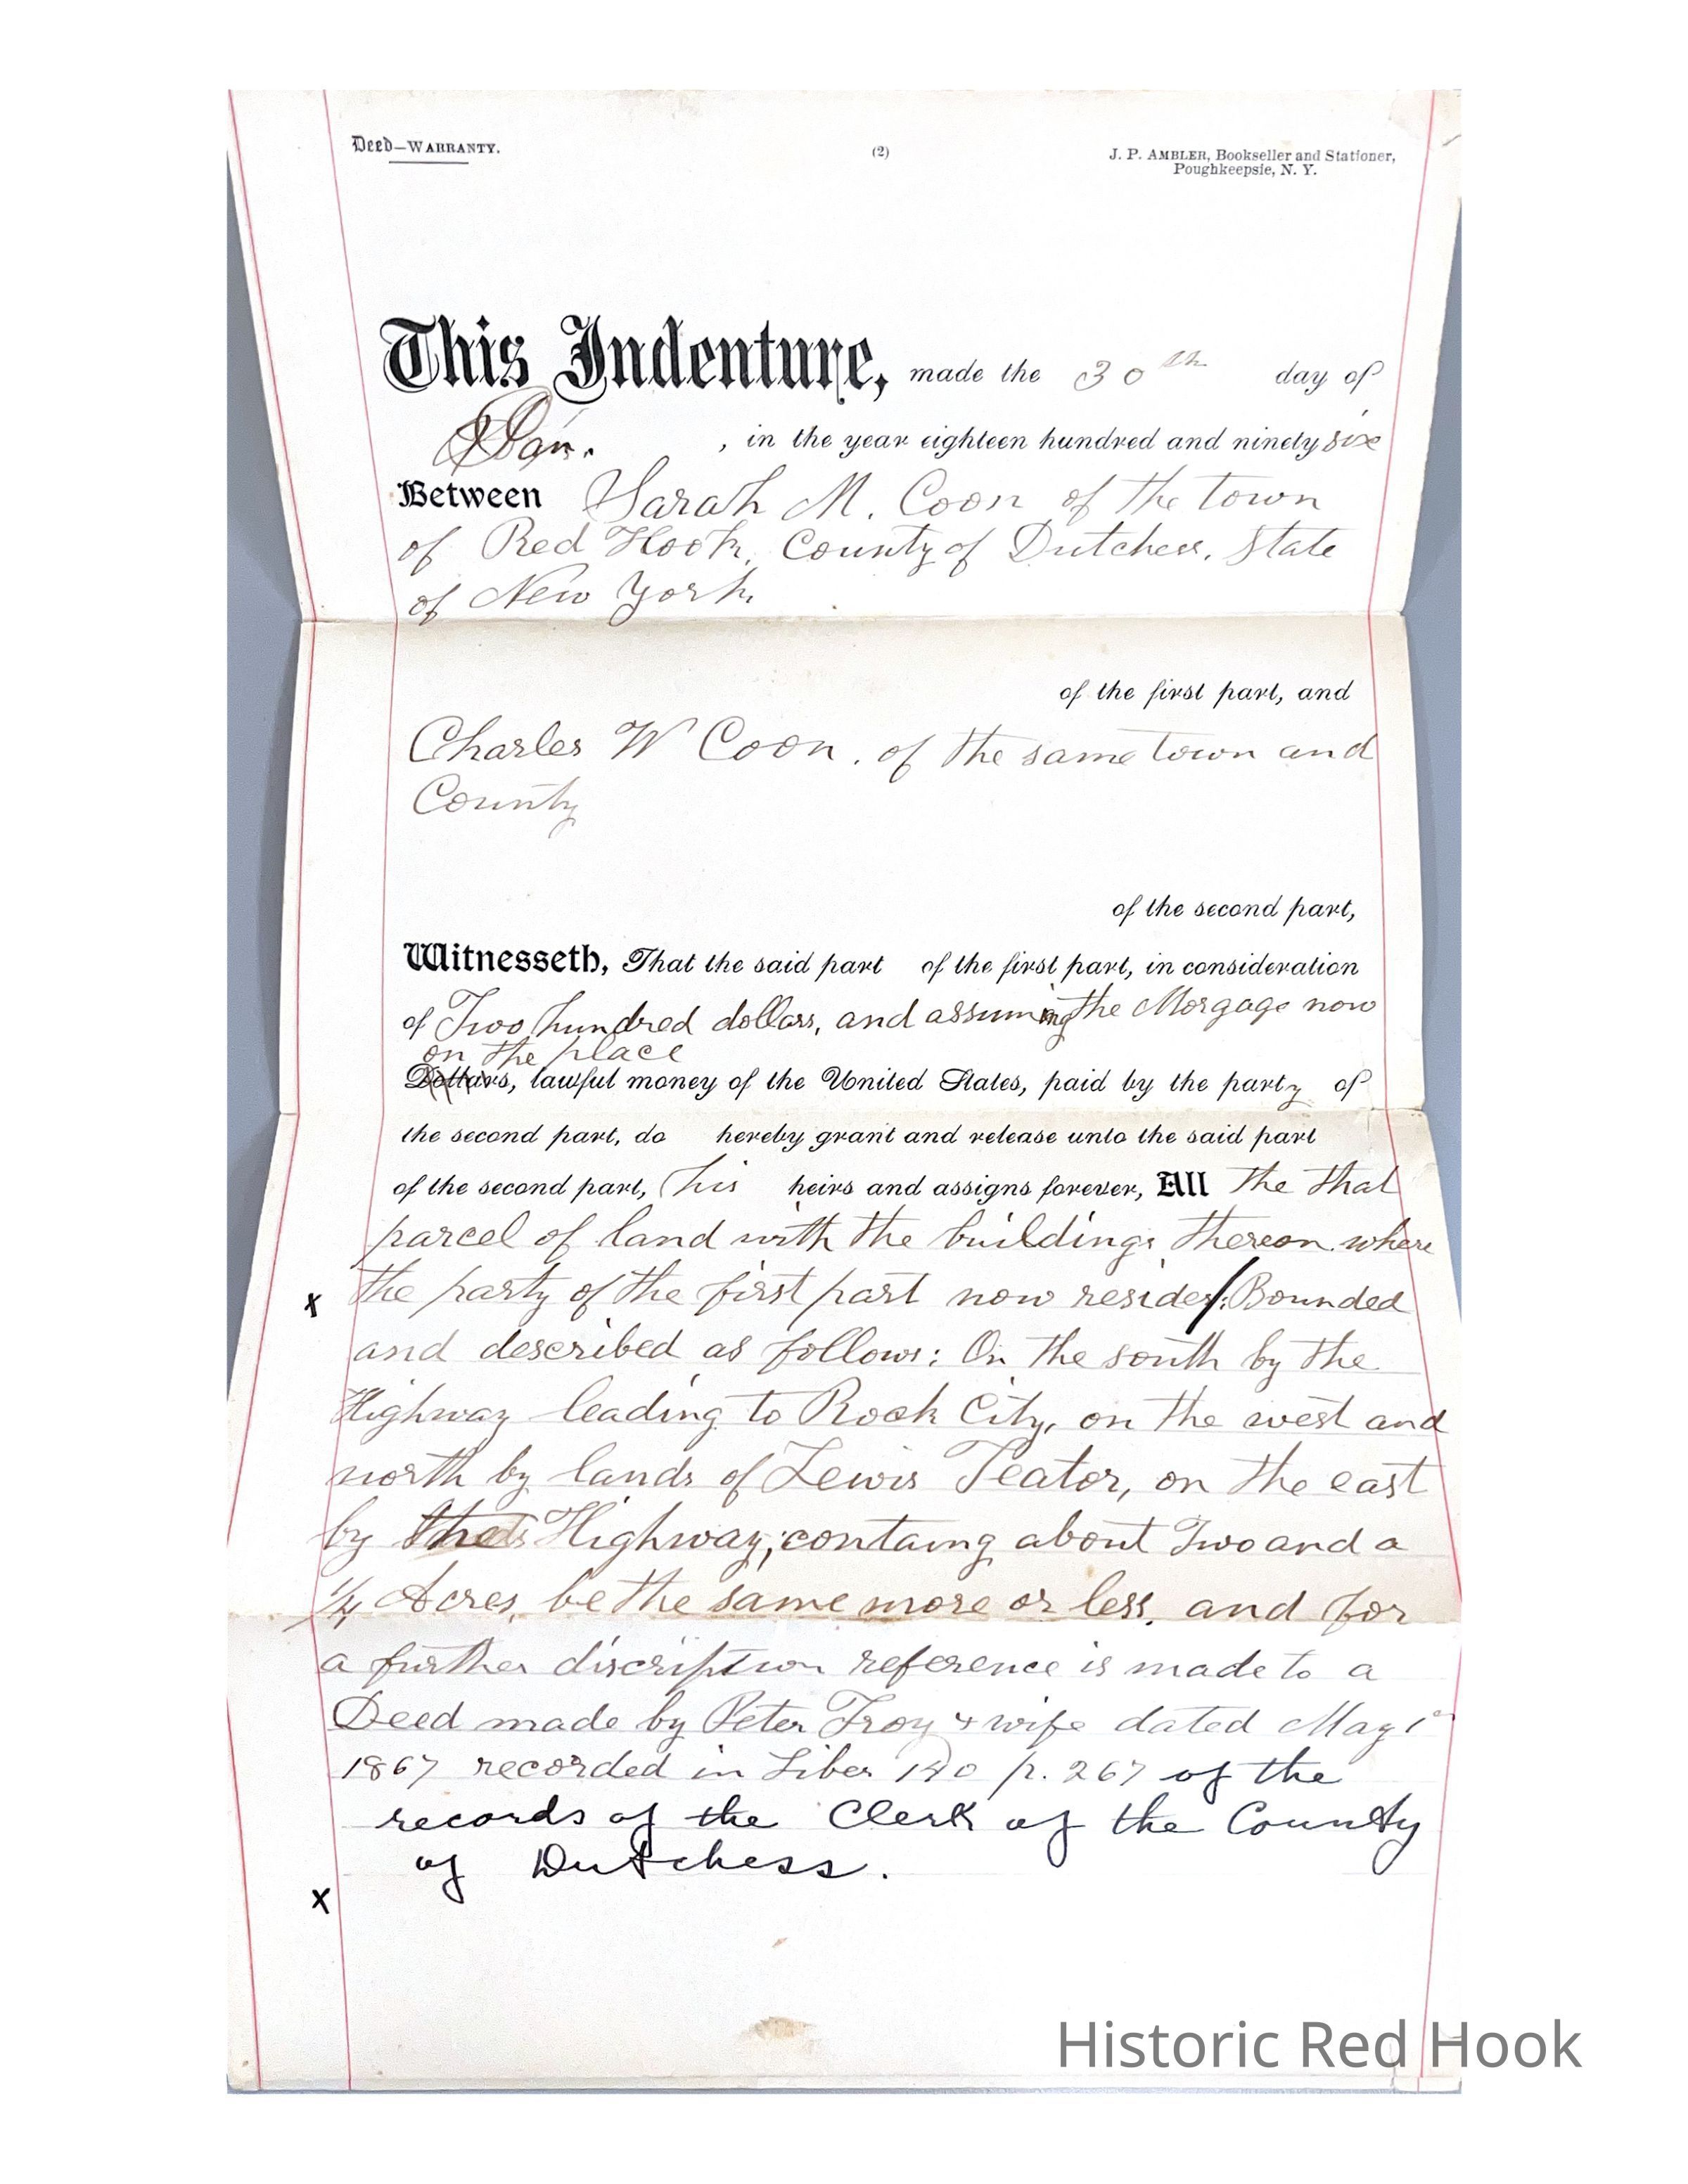 Deed—WARRANTY.
(2)
J. P. AMBLER, Bookseller and Stationer,
Poughkeepsie, N. Y.
This Indenture, made the 30th day of
Jan. , in the year eighteen hundred and ninety six
Between Sarah M. Coon of the town
of Red Hook, County of Dutchess, State
of New York,
of the first part, and
Charles W Coon, of the same town and
County
of the second part,
Witnesseth, That the said part of the first part, in consideration
of Two hundred dollars, and assuming the Morgage now
on the place
Dollars, lawful money of the United States, paid by the party of
the second part, do hereby grant and release unto the said part
of the second part, his heirs and assigns forever, All the that
parcel of land with the buildings thereon where
x the party of the first part now resides/: Bounded
and described as follows: On the south by the
Highway leading to Rock City, on the west and
north by lands of Lewis Teator, on the east
by the Highway; containg about Two and a
1/4 Acres, be the same more or less, and for
a further discription reference is made to a
Deed made by Peter Troy & wife dated May 1st
1867 recorded in Liber p. 267 of the
records of the Clerk of the County
of Dutchess.
x
Historic Red Hook